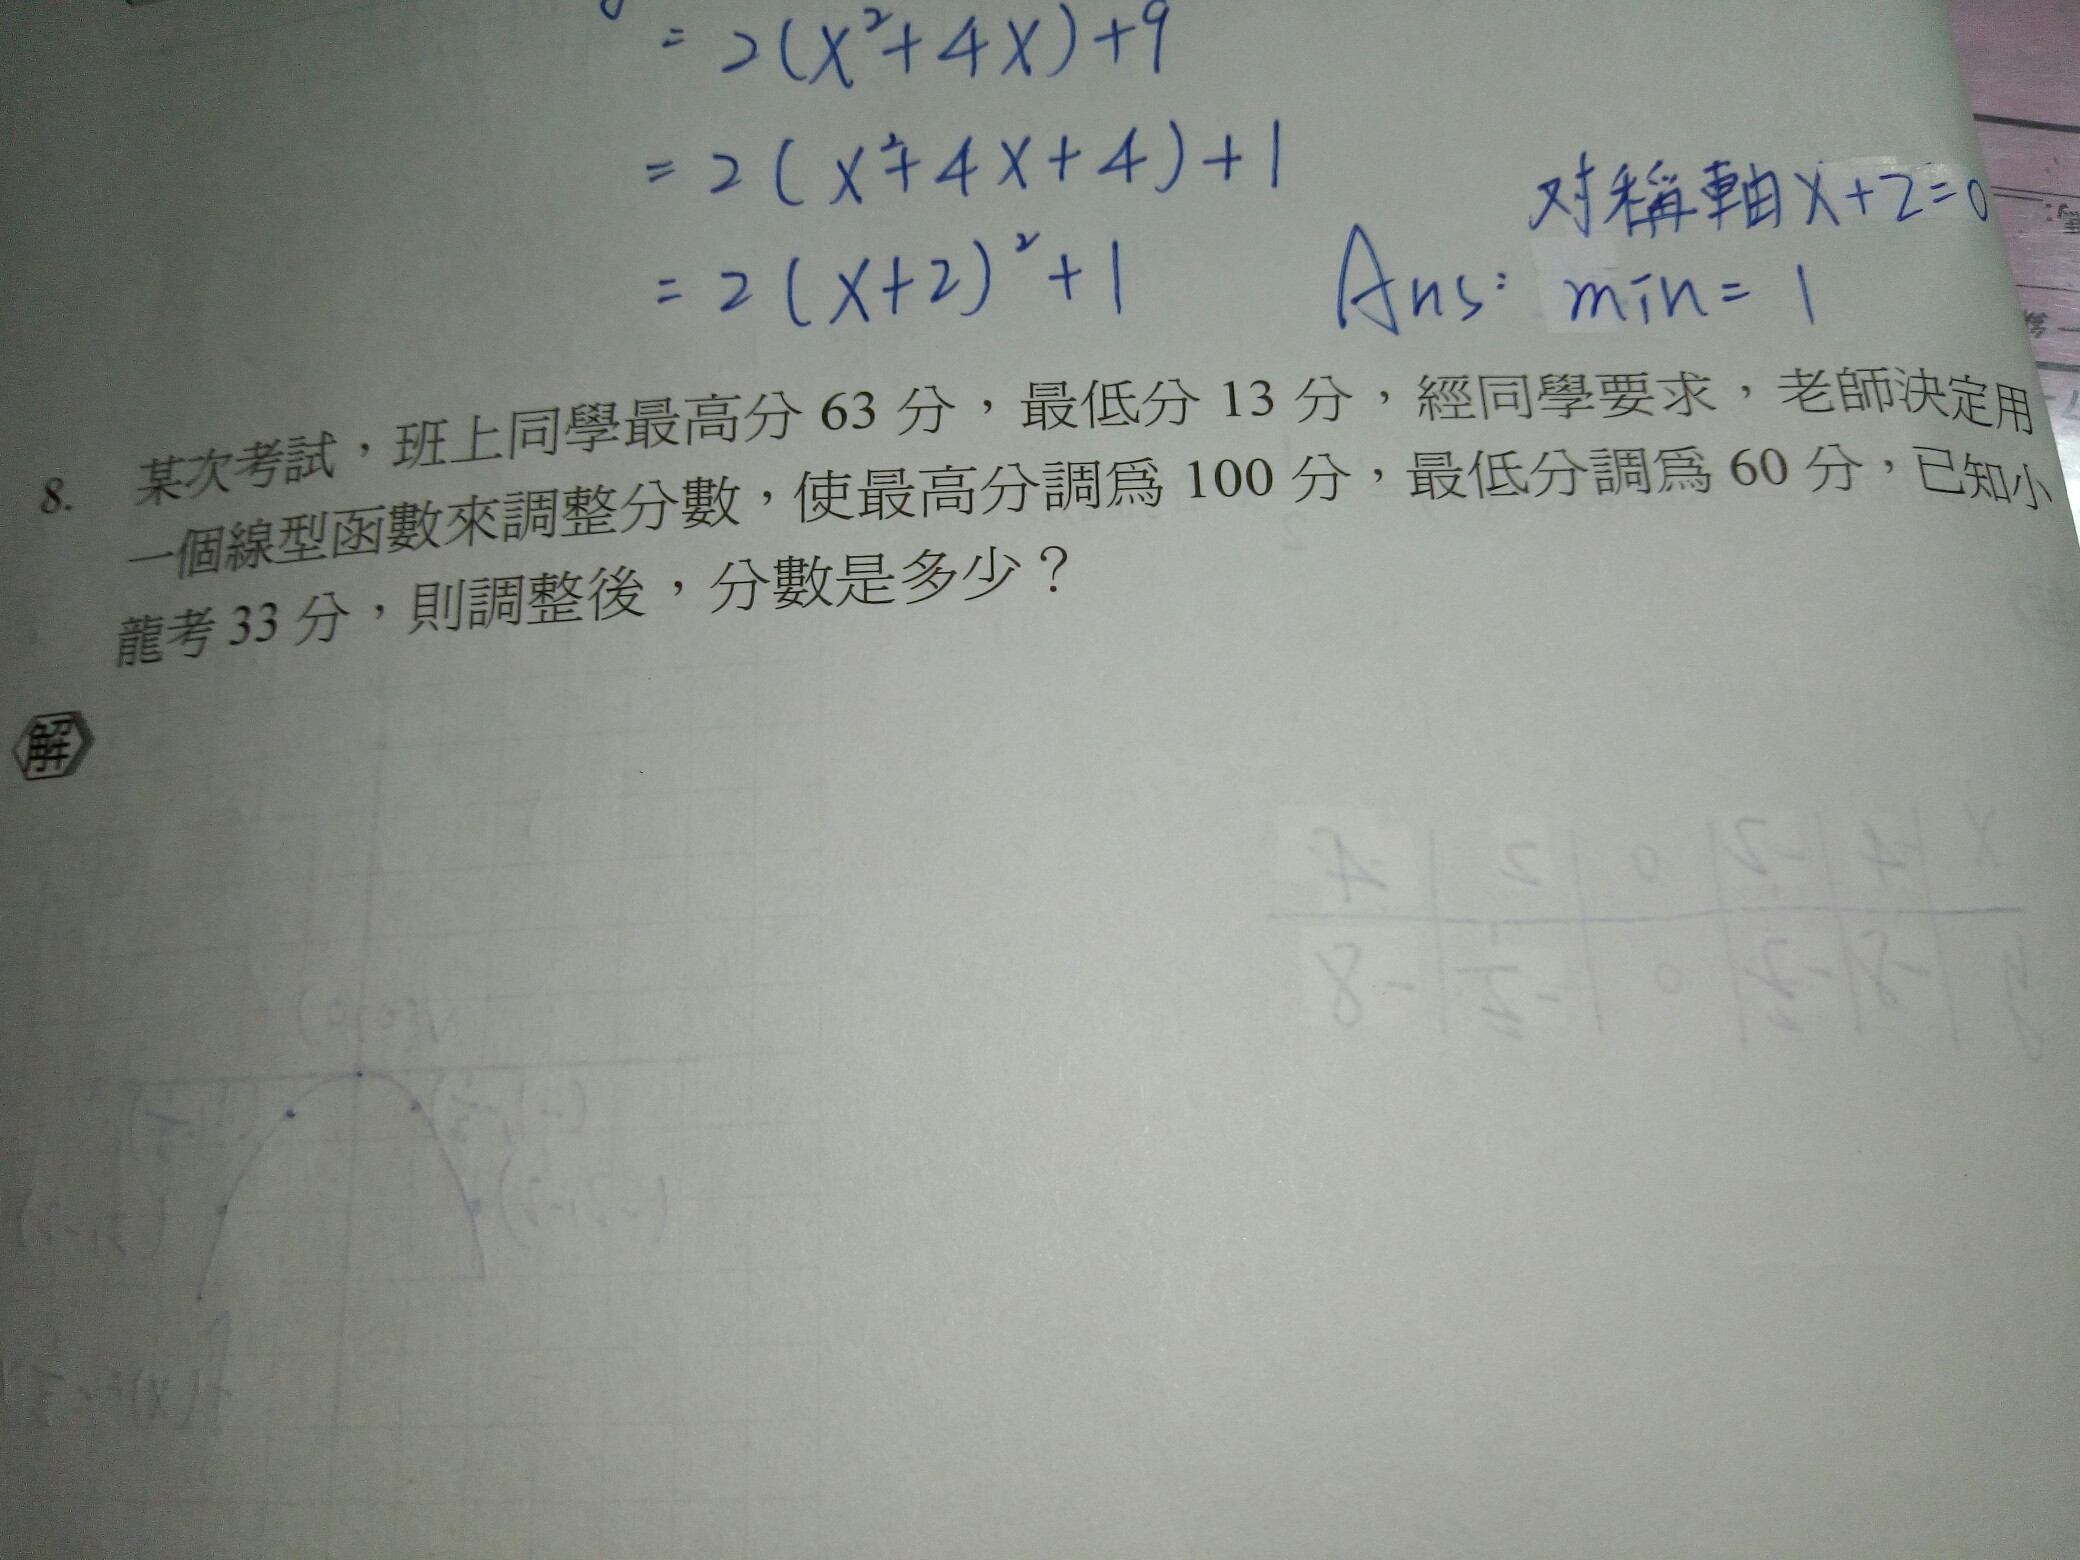 = 2(x²+4x)+9
= 2(x²+4x+4)+1
对稱軸x+2=0
= 2(x+2)²+1 Ans: min=1
8. 某次考試，班上同學最高分 63 分，最低分 13 分，經同學要求，老師決定用
一個線型函數來調整分數，使最高分調爲 100 分，最低分調爲 60 分，已知小
龍考 33 分，則調整後，分數是多少？
解